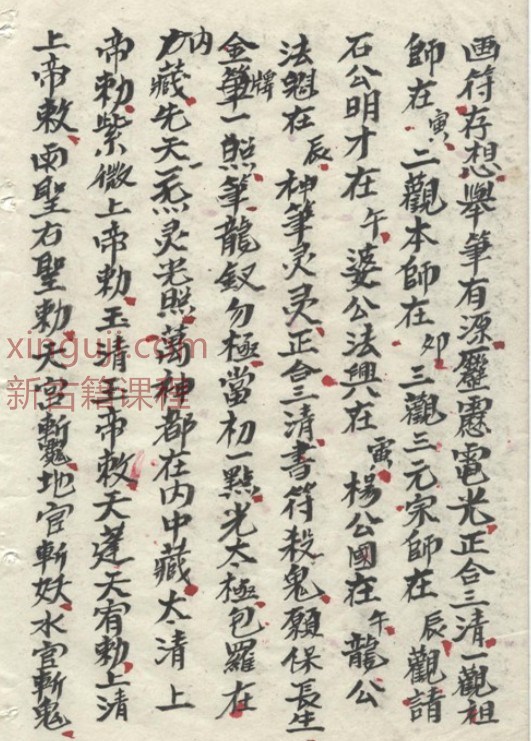 画符存想舉筆有源靂電光正合三清一觀祖
師在寅二觀本師在卯三觀三元宗師在辰觀請
石公明才在午婆公法興在寅楊公國在午龍公
法魁在辰神筆灵灵正合三清書符殺鬼願保長生
金牌筆一照筆龍釵勿極當初一點光太極包羅在
内藏先天一炁灵光照萬神都在内中藏太清上
帝勅紫微上帝勅玉清王帝敕天蓬天宥勅上清
上帝敕南聖右聖勅天官斬地官斬妖水官斬鬼
xinguji.com
新古籍课程